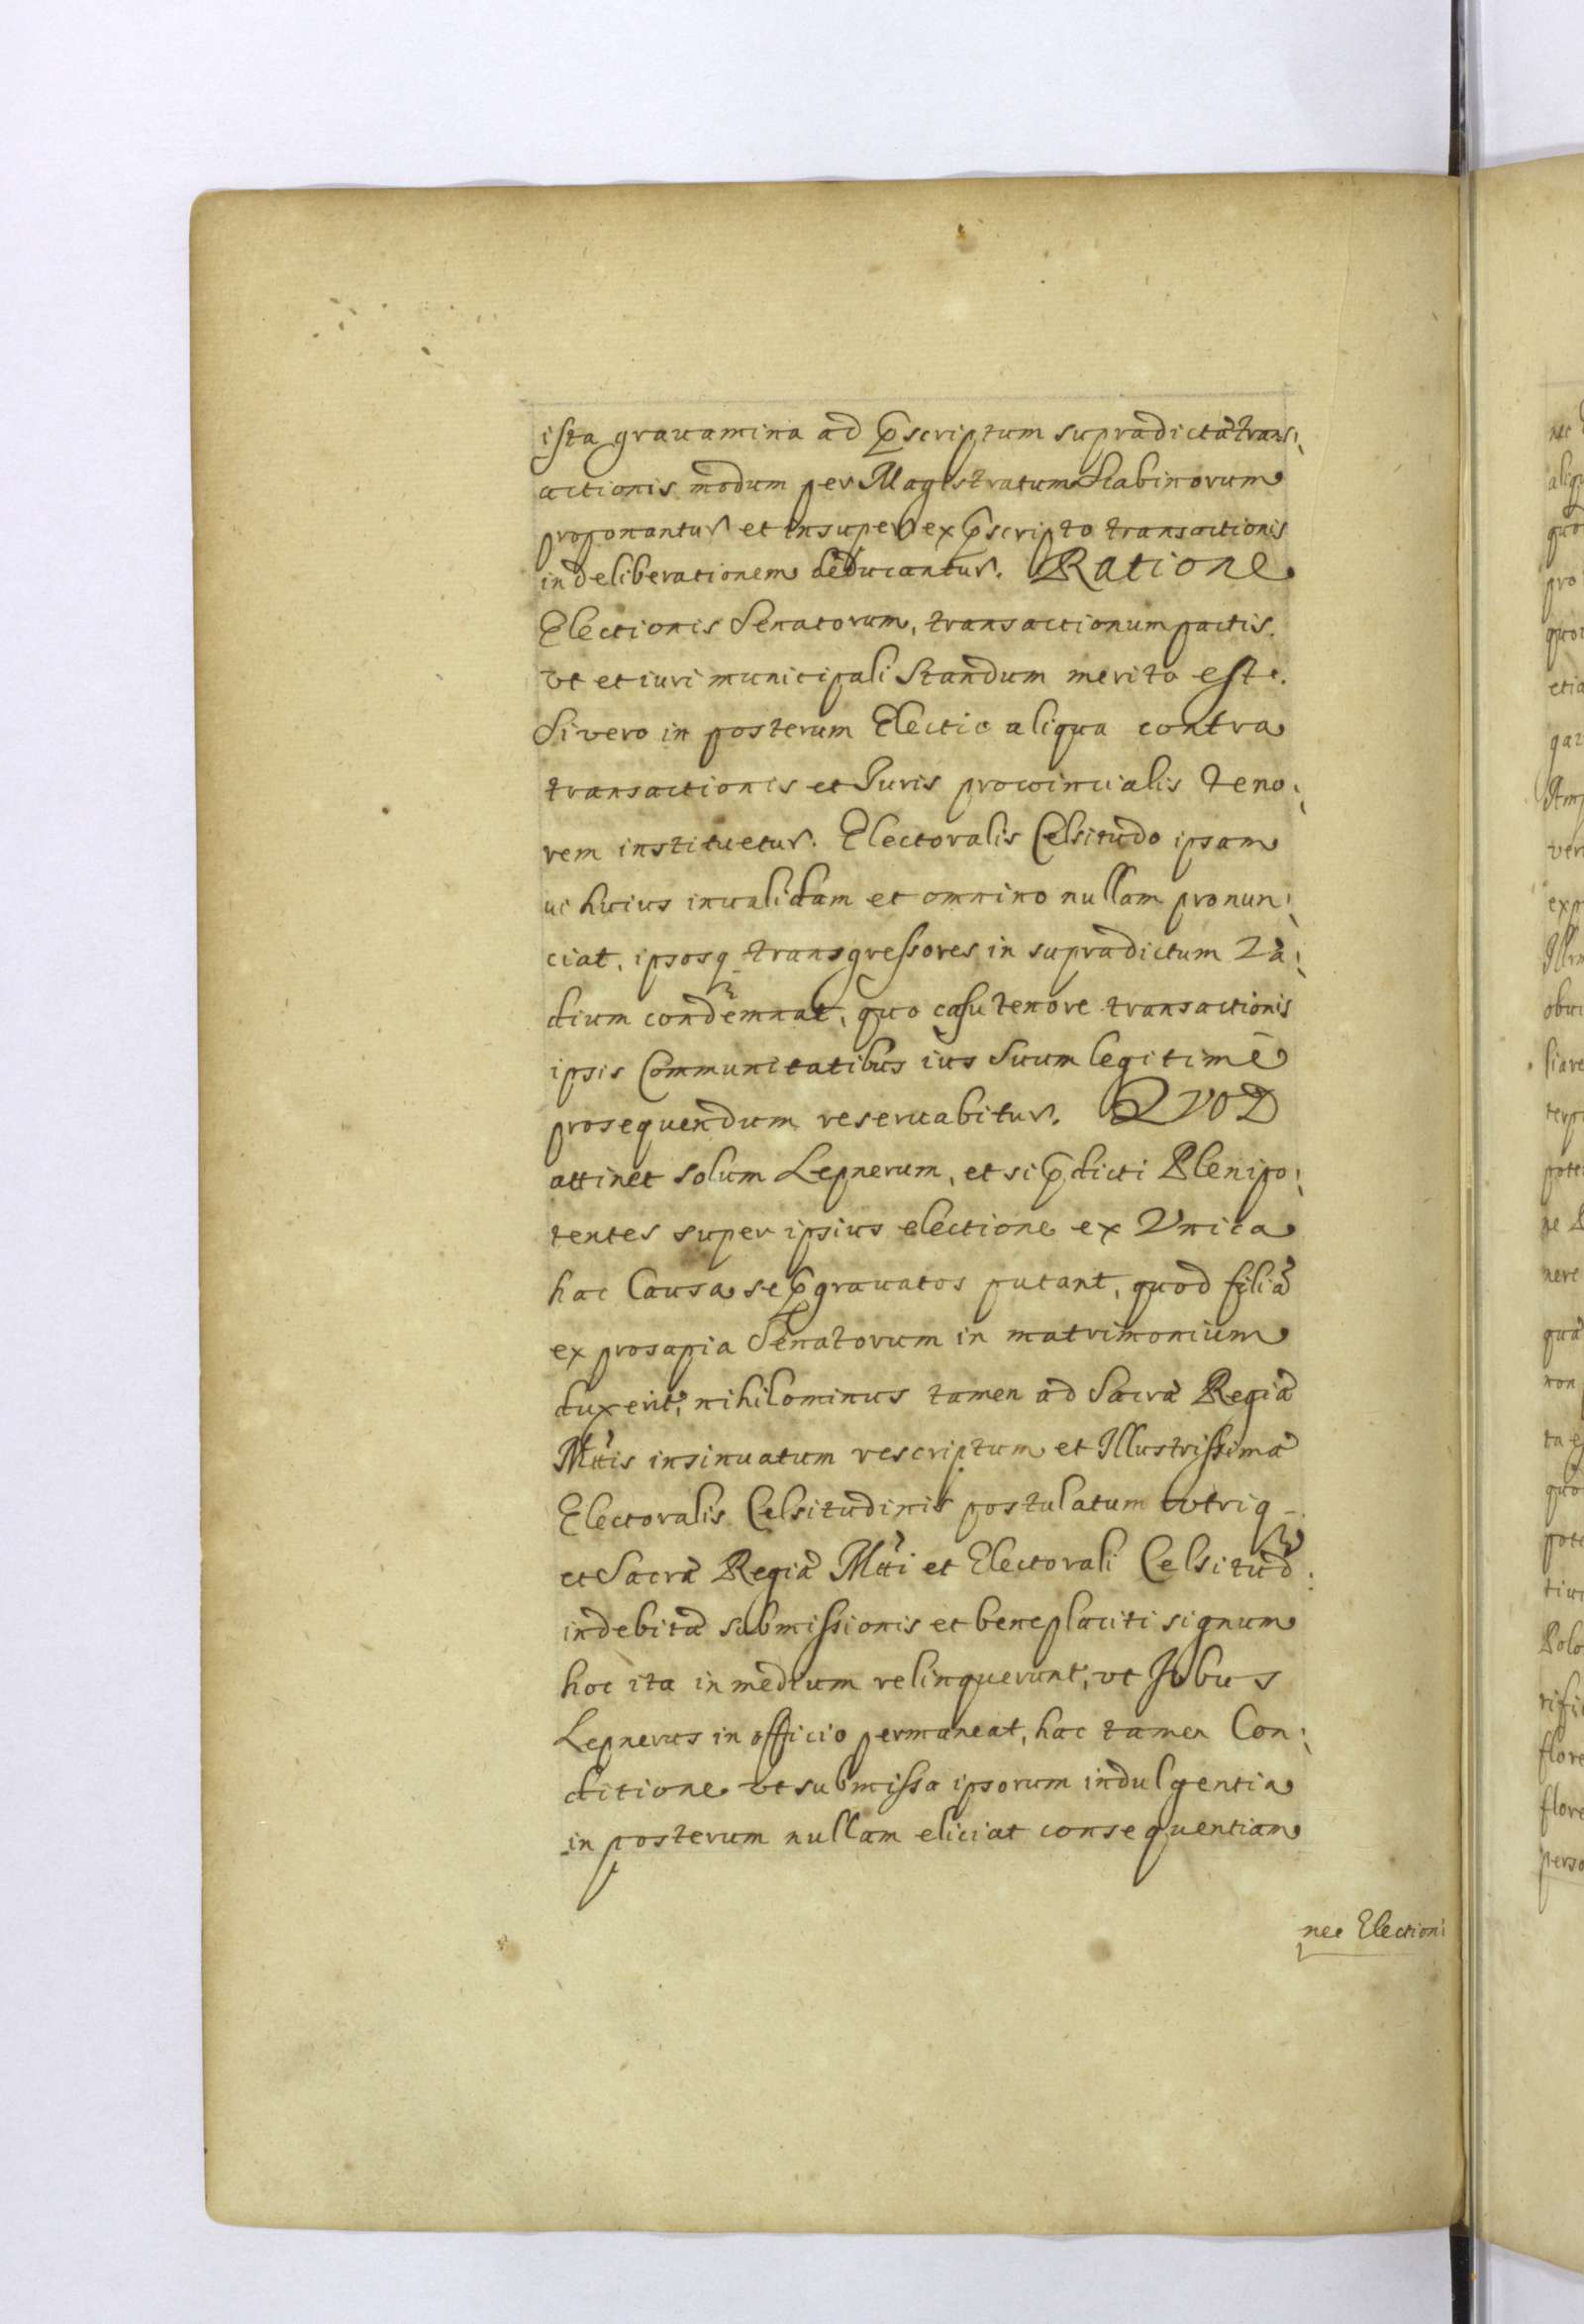 ista grauamina ad p̄scriptum supradictæ trans:
actionis modum per Magistratum Scabinorum
proponantur et insuper ex p̄scripto transactionis
in deliberationem deducantur. Ratione
Electionis Senatorum, transactionum pactis.
vt et iuri municipali Standum merito est.
Si vero in posterum Electio aliqua contra
transactionis et Juris prowincialis teno:
rem instituetur. Electoralis Celsitudo ipsam
ui huius inualidam et omnino nullam pronun:
ciat, ipsosq transgressores in supradictum Va:
dium condemnat, quo casu tenore transactionis
ipsis Communitatibus ius Suum legitimè
prosequendum reseruabitur. QVOD
attinet solum Lepnerum, et si p̄dicti Plenipo:
tentes super ipsius electione ex Vnica
hac Causa se p̄grauatos putant, quod filiā
ex prosapia Senatorum in matrimonium
duxerit, nihilominus tamen ad Sacræ Regiæ
Mttis insinuatum rescriptum et Illustrissimæ
Electoralis Celsitudinis postulatum vtriq
et Sacræ Regiæ Mtti et Electorali Celsitud:
in debitæ submissionis et beneplaciti signum
hoc ita in medium relinquerunt, vt Jobus
Lepnerus in officio permaneat, hac tamen Con:
ditione vt submissa ipsorum indulgentia
in posterum nullam eliciat consequentiam
nec Electioni